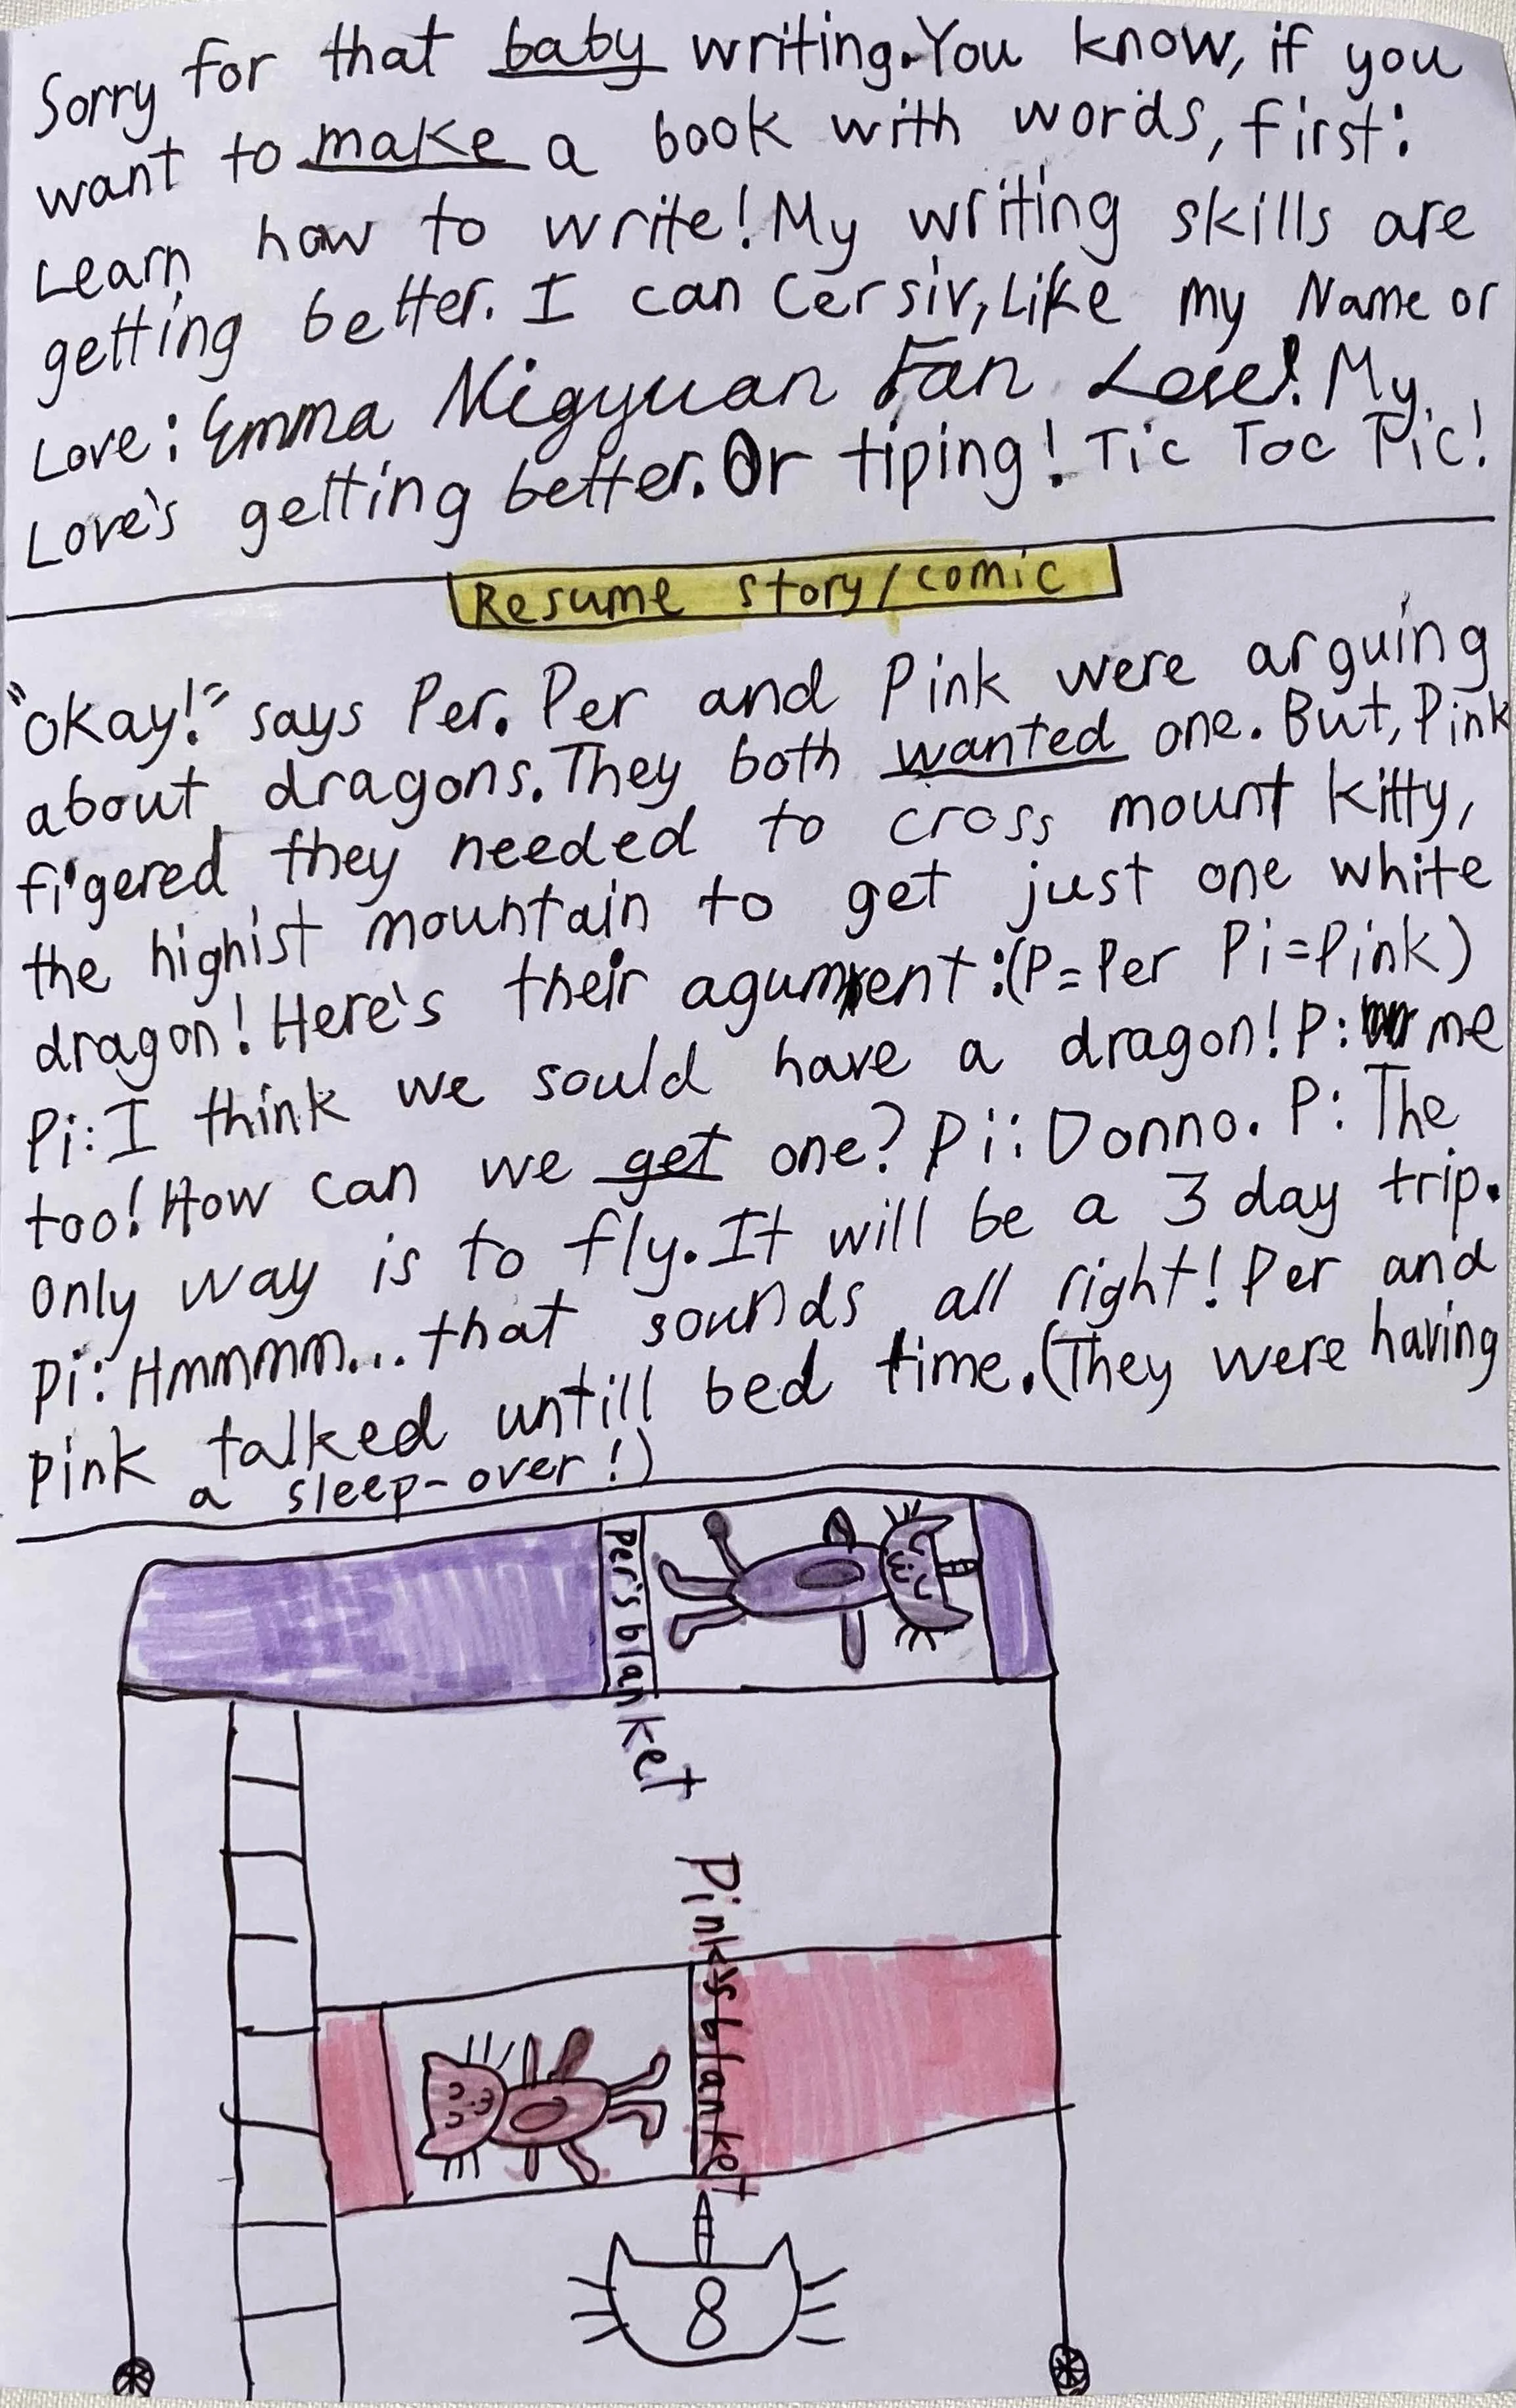 Sorry for that baby writing. You know, if you
want to make a book with words, first:
Learn how to write! My writing skills are
getting better. I can Cersiv, Like my Name or
Love: Emma Nigyuan Fan Love! My
Love's getting better. Or tiping! Tic Toc Tic!
Resume story/comic
"Okay!" says Per. Per and Pink were arguing
about dragons. They both wanted one. But, Pink
figered they needed to cross mount kitty,
the highist mountain to get just one white
dragon! Here's their agument: (P=Per Pi=Pink)
Pi: I think we sould have a dragon! P: me
too! How can we get one? Pi: Donno. P: The
only way is to fly. It will be a 3 day trip.
Pi: Hmmmm... that sounds all right! Per and
Pink talked untill bed time. (They were having
a sleep-over!)
Per's blanket
Pink's blanket
8